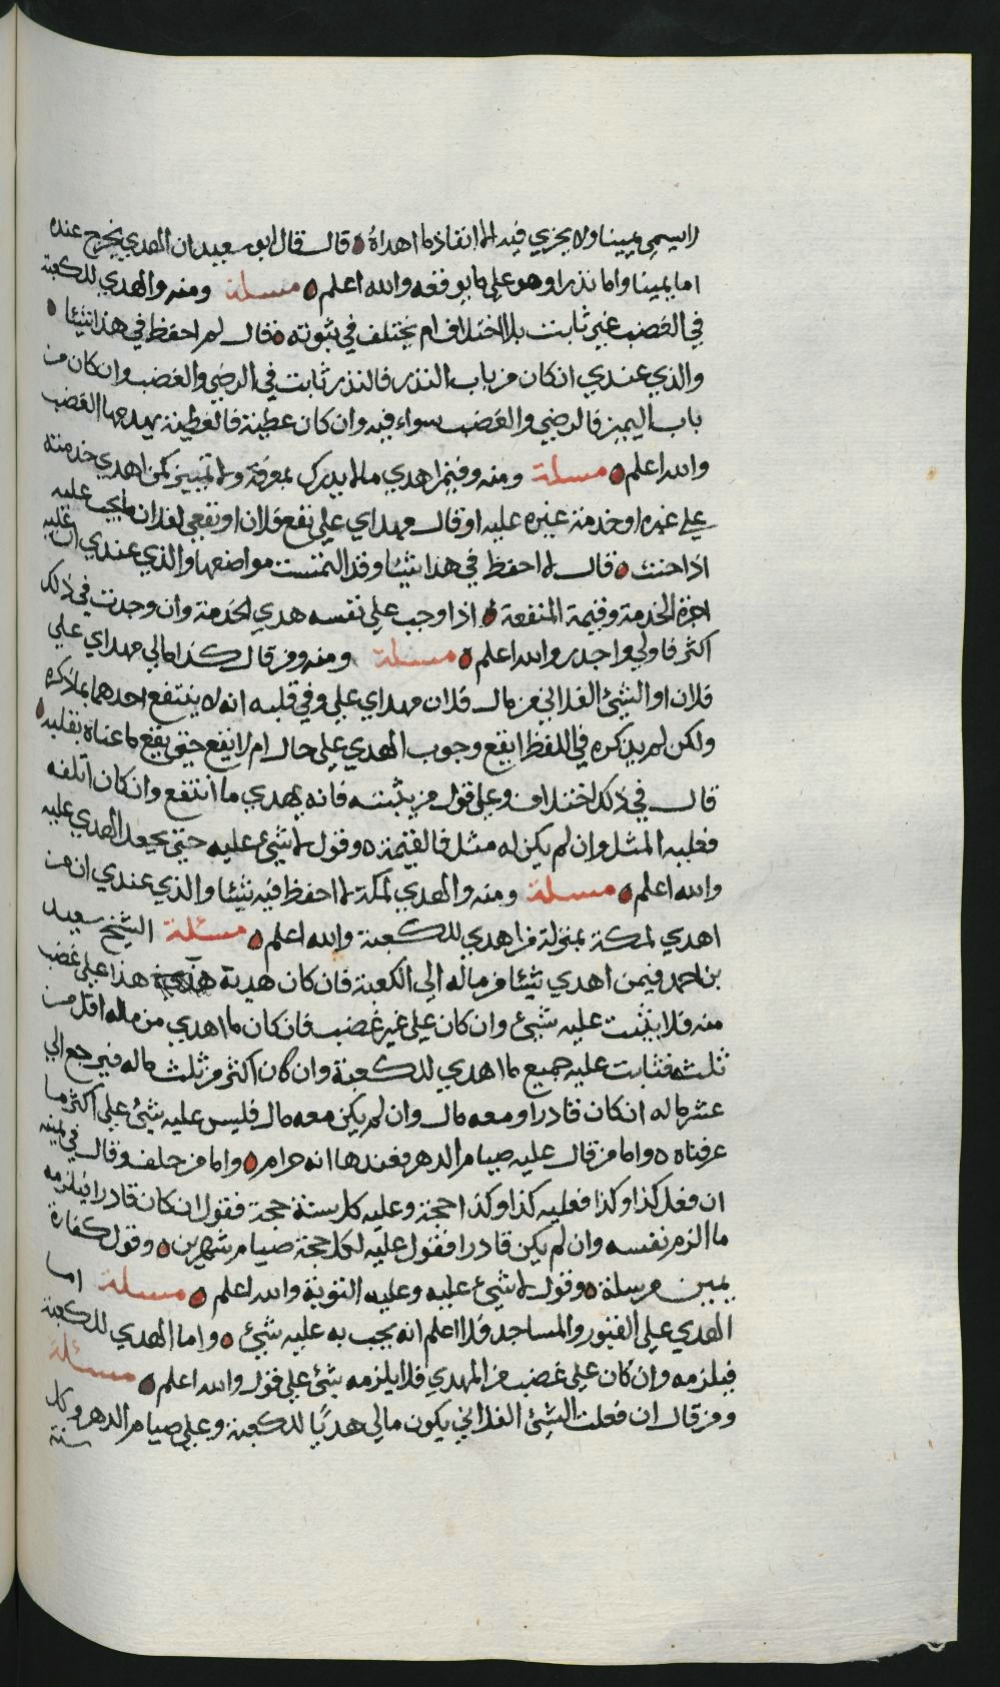 لا يسمى يمينا ولا يجزي فيه الا انفاذ ما اهداه قال قال ابو سعيد ان الهدي يخرج عنده
اما يمينا واما نذرا وهو على ما يوقعه والله اعلم مسلة ومنه والهدي للكعبة
في الغضب غير ثابت بلا اختلاف ام يختلف في ثبوته قال لم احفظ في هذا شيئا
والذي عندي ان كان من باب النذر فالنذر ثابت في الرضي والغضب وان كان من
باب اليمين فالرضي والغضب سواء فيه وان كان عطية فالعطية يهدمها الغضب
والله اعلم مسلة ومنه وفيمن اهدي ما لا يدرك بمعرفة ولا تمييز كمن اهدي خدمته
على غيره او خدمة غيره عليه او قال مهداي علي نفع فلان او نفعي لفلان ما يجب عليه
اذا حنث قال لا احفظ في هذا شيئا وقد التمست مواضعها والذي عندي ان عليه
اجرة الخدمة وقيمة المنفعة اذا وجب على نفسه هدي الخدمة وان وجدت في ذلك
اكثر فاولي واجدر والله اعلم مسلة ومنه ومن قال كذا مالي مهداي على
فلان او الشيئ الفلاني من مال فلان مهداي علي وفي قلبه انه لا ينتفع احدهما بما ذكره
ولكن لم يذكره في اللفظ ايقع وجوب الهدي على حال ام لا يقع حتى يقع ما عناه بقلبه
قال في ذلك اختلاف وعلى قول من يثبته فانه يهدي ما انتفع وان كان اتلفه
فعليه المثل وان لم يكن له مثل فالقيمة وقول لا شيء عليه حتى يجعل الهدي عليه
والله اعلم مسلة ومنه والهدي لمكة لا احفظ فيه شيئا والذي عندي ان من
اهدي لمكة بمنزلة من اهدي للكعبة والله اعلم مسئلة الشيخ سعيد
بن احمد فيمن اهدي شيئا من ماله الي الكعبة فان كان هدية هذا على غضب
منه فلا يثبت عليه شيئ وان كان على غير غضب فان كان ما اهدي من ماله اقل من
ثلثه فثابت عليه جميع ما اهدي للكعبة وان كان اكثر من ثلث ماله فيرجع الي
عشر ماله ان كان قادرا ومعه مال وان لم يكن معه مال فليس عليه شيئ على اكثر ما
عرفناه واما من قال عليه صيام الدهر فعندها انه حرام واما من حلف وقال في يمينه
ان فعل كذا وكذا فعليه كذا وكذا حجة وعليه كل سنة حجة فقول ان كان قادرا فيلزمه
ما الزم نفسه وان لم يكن قادرا فقول عليه لكل حجة صيام شهرين وقول كفارة
يمين مرسلة وقول لا شيء عليه وعليه التوبة والله اعلم مسلة اما
الهدي على القبور والمساجد فلا اعلم انه يجب به عليه شيئ واما الهدي للكعبة
فيلزمه وان كان على غضب من المهدي فلا يلزمه شيئ على قول والله اعلم مسئلة
ومن قال ان فعلت الشيئ الفلاني يكون مالي هديًا للكعبة وعلي صيام الدهر وكل
سنة